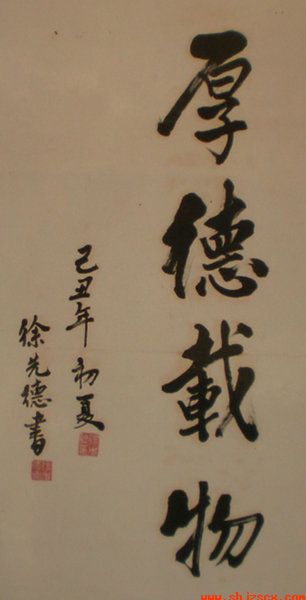 厚德載物
己丑年初夏
徐先德書
www.shjzscx.com